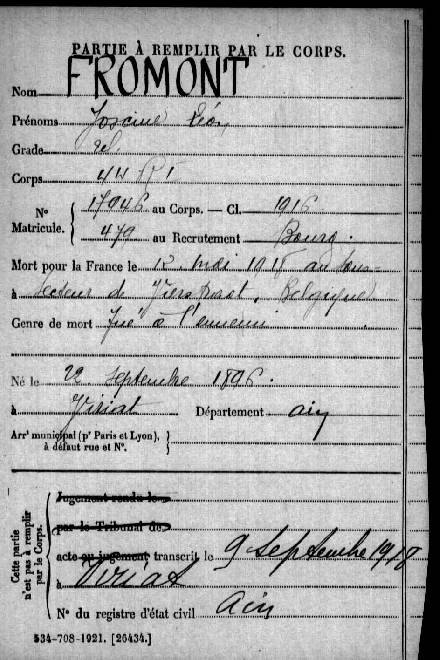 PARTIE À REMPLIR PAR LE CORPS.
Nom FROMONT
Prénoms Léon
Grade
Corps 44 RI
17046 au Corps. — Cl. 1916
N° Matricule.
479 au Recrutement Bourg.
Mort pour la France le 12 mai 1918 au sous-
à secteur de Vierstraat. Belgique
Genre de mort Tué à l'ennemi
Né le 22 septembre 1896.
à Viriat Département ain
Arr' municipal (p' Paris et Lyon), à défaut rue et N°.
Cette partie n'est pas à remplir par le Corps.
Jugement rendu le
par le Tribunal de
acte ou jugement transcrit le 9 septembre 1918
à Viriat
N° du registre d'état civil Ain
534-708-1921. [26434.]